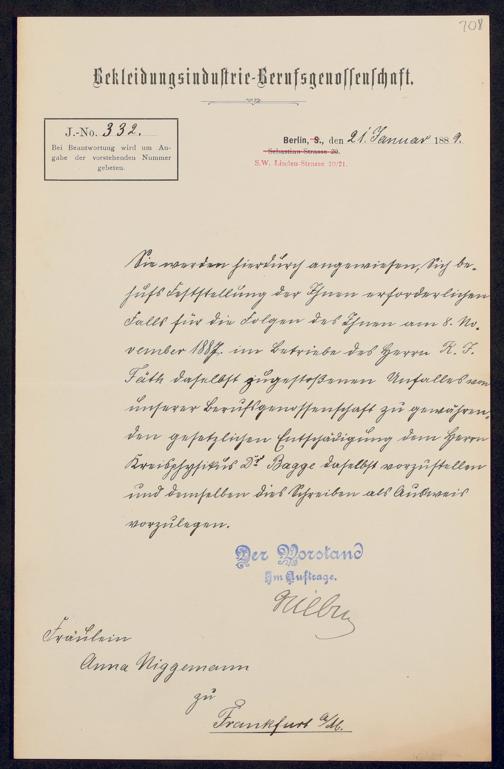 708
Bekleidungsindustrie-Berufsgenossenschaft.
J.-No. 332.
Bei Beantwortung wird um An-
gabe der vorstehenden Nummer
gebeten.
Berlin, S., den 21. Januar 1889.
Sebastian-Strasse 20.
S.W. Linden-Strasse 20/21.
Sie werden hierdurch angewiesen, Sich be-
hufs Feststellung der Ihnen erforderlichen
Falls für die Folgen des Ihnen am 8. No-
vember 1887. im Betriebe des Herrn K. F.
Fäth daselbst zugestoßenen Unfalles von
unserer Berufsgenossenschaft zu gewähren-
den gesetzlichen Entschädigung dem Herrn
Kreisphysikus Dr Bagge daselbst vorzustellen
und demselben dies Schreiben als Ausweis
vorzulegen.
Der Vorstand
Im Auftrage.
Fräulein
Anna Niggemann
zu
Frankfurt a/M.